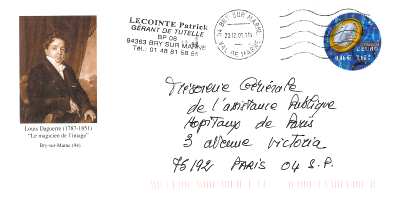 LECOINTE Patrick
GÉRANT DE TUTELLE
BP 08
94363 BRY SUR MARNE
Tél.: 01 48 81
94 BRY SUR MARNE
VAL DE MARNE
0,46 €
Trésorerie Générale
de l'assistance Publique
Hopitaux de Paris
3 avenue Victoria
75192 PARIS 04 S.P.
Louis Daguerre (1787-1851)
"Le magicien de l'image"
Bry-sur-Marne (94)